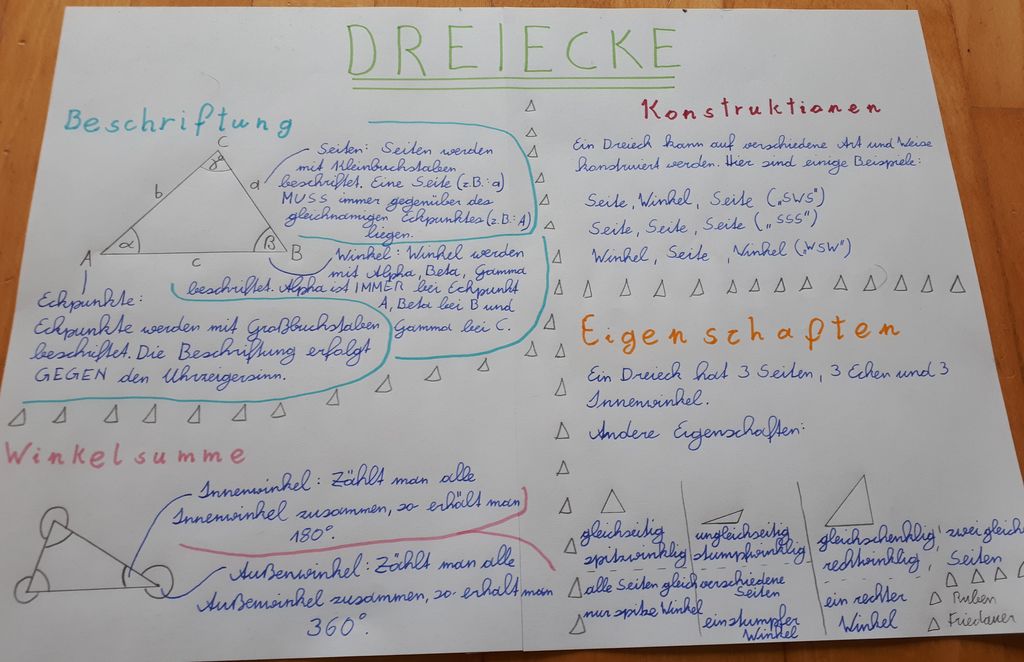 DREIECKE
Beschriftung
C
γ
b
a
α
β
A
B
c
Seiten: Seiten werden
mit Kleinbuchstaben
beschriftet. Eine Seite (z.B.: a)
MUSS immer gegenüber des
gleichnamigen Eckpunktes (z.B.: A)
liegen.
Winkel: Winkel werden
mit Alpha, Beta, Gamma
beschriftet. Alpha ist IMMER bei Eckpunkt
A, Beta bei B und
Gamma bei C.
Eckpunkte:
Eckpunkte werden mit Großbuchstaben
beschriftet. Die Beschriftung erfolgt
GEGEN den Uhrzeigersinn.
Winkelsumme
Innenwinkel: Zählt man alle
Innenwinkel zusammen, so erhält man
180°.
Außenwinkel: Zählt man alle
Außenwinkel zusammen, so erhält man
360°.
Konstruktionen
Ein Dreieck kann auf verschiedene Art und Weise
konstruiert werden. Hier sind einige Beispiele:
Seite, Winkel, Seite („SWS")
Seite, Seite, Seite („SSS")
Winkel, Seite, Winkel („WSW")
Eigenschaften
Ein Dreieck hat 3 Seiten, 3 Ecken und 3
Innenwinkel.
Andere Eigenschaften:
gleichseitig
spitzwinklig
alle Seiten gleich
nur spitze Winkel
ungleichseitig
stumpfwinklig
verschiedene
Seiten
ein stumpfer
Winkel
gleichschenklig, zwei gleich
rechtwinklig, Seiten
ein rechter
Winkel
Ruben
Friedauer